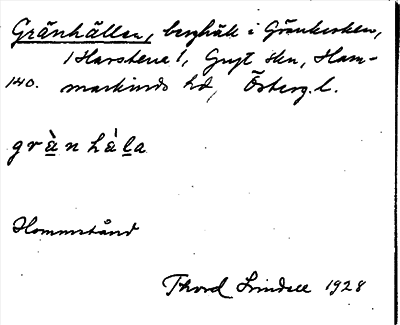 Gränhällen, berghäll i Gränkusken,
/Harstena/, Gryt skn, Ham-
140. markinds hd, Österg. l.
gränhäla
Hommstånd
Thord Lindell 1928